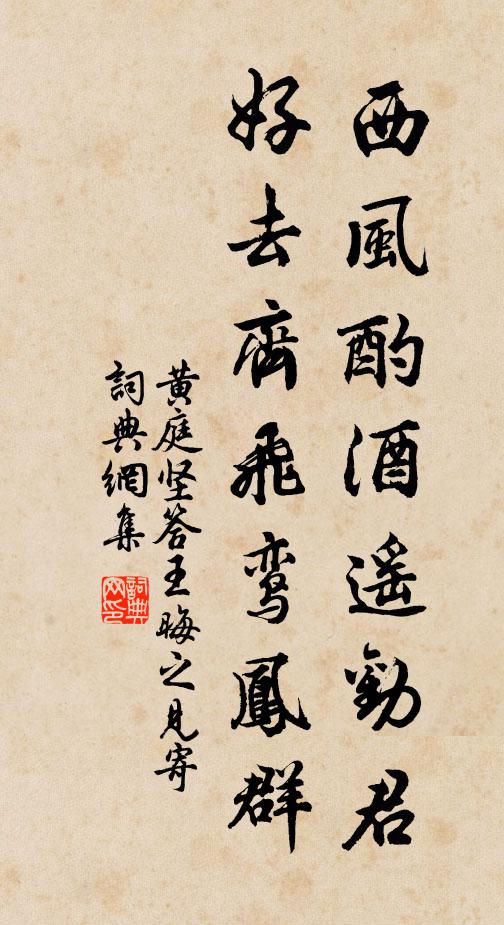 西風酌酒遥勸君
好去齊飛鸾鳳群
黄庭坚答王晦之見寄
詞典網集
詞典網印